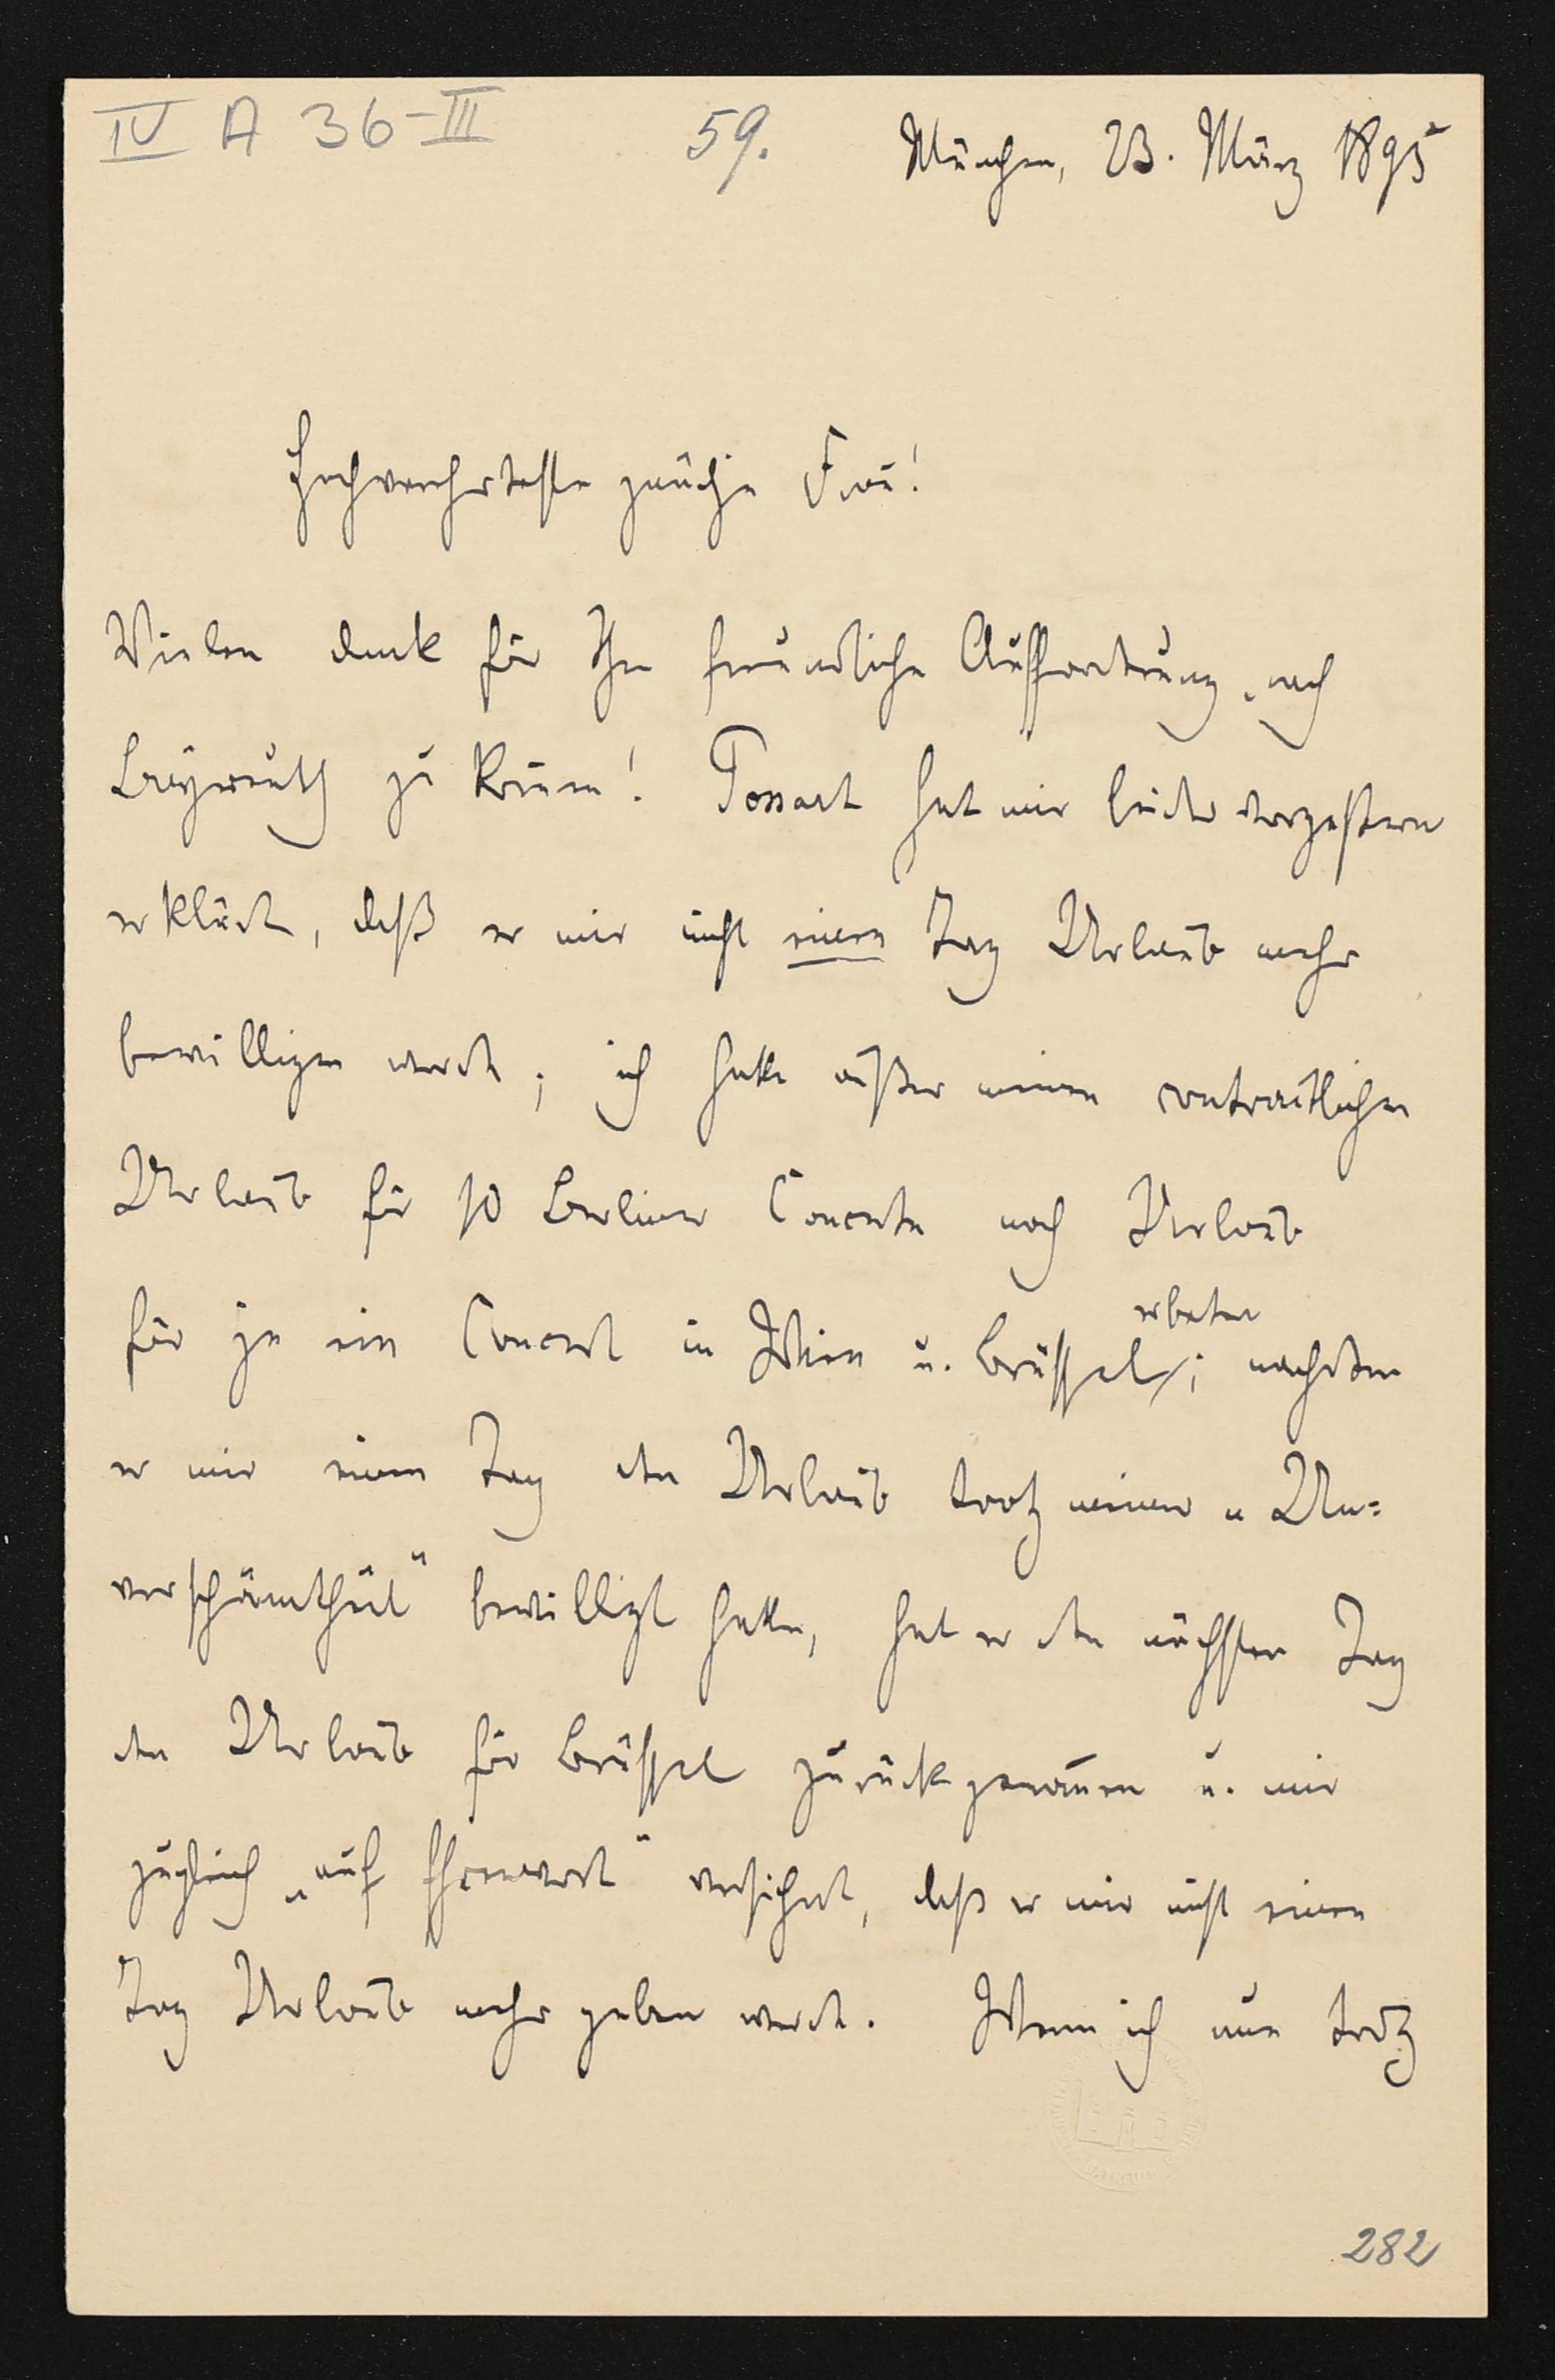 IV A 36-III
59.
München, 23. März 1895
Hochverehrteste gnädige Frau!
Vielen Dank für Ihre freundliche Aufforderung, nach
Bayreuth zu kom̄en! Possart hat mir leider vorgestern
erklärt, daß er mir nicht einen Tag Urlaub mehr
bewilligen werde; ich hatte außer meinem contractlichen
Urlaub für 10 Berliner Concerte noch Urlaub
für je ein Concert in Wien u. Brüssel erbeten; nachdem
er mir einen Tag den Urlaub trotz meiner „Un=
verschämtheit“ bewilligt hatte, hat er den nächsten Tag
den Urlaub für Brüssel zurückgenom̄en u. mir
zugleich „auf Ehrenwort“ versichert, daß er mir nicht einen
Tag Urlaub mehr geben werde. Wenn ich nun trotz
282